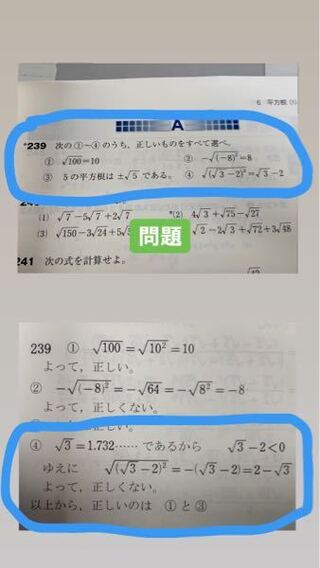 6 平方根
A
*239 次の①〜④のうち、正しいものをすべて選べ。
① √100=10 ② -√(-8)²=8
③ 5の平方根は±√5である。 ④ √(√3-2)²=√3-2
(1) √7-5√7+2√7 *(2) 4√3+√75-√27
(3) √150-3√24+5√ √2-2√3+√72+3√48
問題
241 次の式を計算せよ。
239 ① √100=√10²=10
よって、正しい。
② -√(-8)²=-√64=-√8²=-8
よって、正しくない。
④ √3=1.732……であるから √3-2<0
ゆえに √(√3-2)²=-(√3-2)=2-√3
よって、正しくない。
以上から、正しいのは ①と③